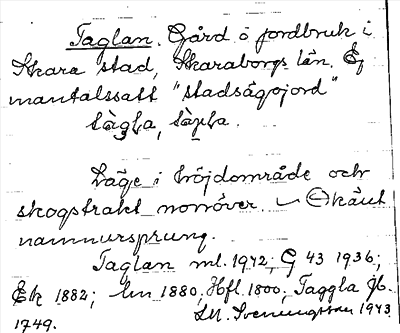 Taglan. Gård o jordbruk i
Skara stad, Skaraborgs län. Ej
mantalssatt "stadsägojord"
Läge i höjdområde och
skogstrakt norröver. Okänt
namnursprung.
Taglan ml. 1942; G 43 1936;
Ek 1882; 1880; Hfl. 1800; Taggla Jb.
1749.
1943